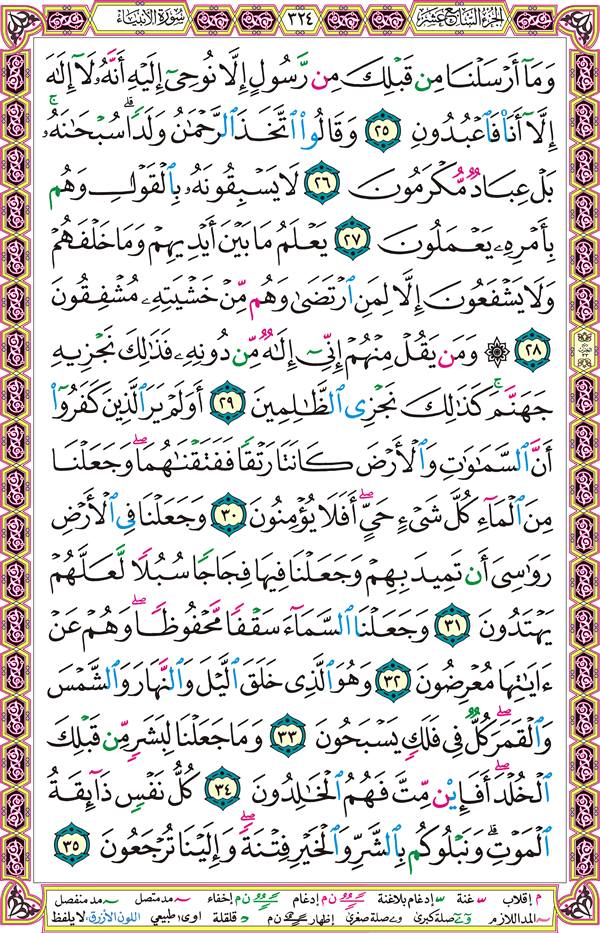 الجزء السابع عشر
٣٢٤
سورة الأنبياء
وَمَآ أَرْسَلْنَا مِن قَبْلِكَ مِن رَّسُولٍ إِلَّا نُوحِىٓ إِلَيْهِ أَنَّهُۥ لَآ إِلَٰهَ
إِلَّآ أَنَا۠ فَٱعْبُدُونِ ٢٥ وَقَالُوا۟ ٱتَّخَذَ ٱلرَّحْمَٰنُ وَلَدًا ۗ سُبْحَٰنَهُۥ ۚ
بَلْ عِبَادٌ مُّكْرَمُونَ ٢٦ لَا يَسْبِقُونَهُۥ بِٱلْقَوْلِ وَهُم
بِأَمْرِهِۦ يَعْمَلُونَ ٢٧ يَعْلَمُ مَا بَيْنَ أَيْدِيهِمْ وَمَا خَلْفَهُمْ
وَلَا يَشْفَعُونَ إِلَّا لِمَنِ ٱرْتَضَىٰ وَهُم مِّنْ خَشْيَتِهِۦ مُشْفِقُونَ
٢٨ ۞ وَمَن يَقُلْ مِنْهُمْ إِنِّىٓ إِلَٰهٌ مِّن دُونِهِۦ فَذَٰلِكَ نَجْزِيهِ
جَهَنَّمَ ۚ كَذَٰلِكَ نَجْزِى ٱلظَّٰلِمِينَ ٢٩ أَوَلَمْ يَرَ ٱلَّذِينَ كَفَرُوٓا۟
أَنَّ ٱلسَّمَٰوَٰتِ وَٱلْأَرْضَ كَانَتَا رَتْقًا فَفَتَقْنَٰهُمَا ۖ وَجَعَلْنَا
مِنَ ٱلْمَآءِ كُلَّ شَىْءٍ حَىٍّ ۖ أَفَلَا يُؤْمِنُونَ ٣٠ وَجَعَلْنَا فِى ٱلْأَرْضِ
رَوَٰسِىَ أَن تَمِيدَ بِهِمْ وَجَعَلْنَا فِيهَا فِجَاجًا سُبُلًا لَّعَلَّهُمْ
يَهْتَدُونَ ٣١ وَجَعَلْنَا ٱلسَّمَآءَ سَقْفًا مَّحْفُوظًا ۖ وَهُمْ عَنْ
ءَايَٰتِهَا مُعْرِضُونَ ٣٢ وَهُوَ ٱلَّذِى خَلَقَ ٱلَّيْلَ وَٱلنَّهَارَ وَٱلشَّمْسَ
وَٱلْقَمَرَ ۖ كُلٌّ فِى فَلَكٍ يَسْبَحُونَ ٣٣ وَمَا جَعَلْنَا لِبَشَرٍ مِّن قَبْلِكَ
ٱلْخُلْدَ ۖ أَفَإِي۟ن مِّتَّ فَهُمُ ٱلْخَٰلِدُونَ ٣٤ كُلُّ نَفْسٍ ذَآئِقَةُ
ٱلْمَوْتِ ۗ وَنَبْلُوكُم بِٱلشَّرِّ وَٱلْخَيْرِ فِتْنَةً ۖ وَإِلَيْنَا تُرْجَعُونَ ٣٥
م إقلاب س غنة س إدغام بلاغنة ن م إدغام ن م إخفاء مد متصل مد منفصل
المد اللازم صلة كبرى صلة صغرى إظهار ن م قلقلة اوى طبيعي اللون الأزرق: لا يلفظ